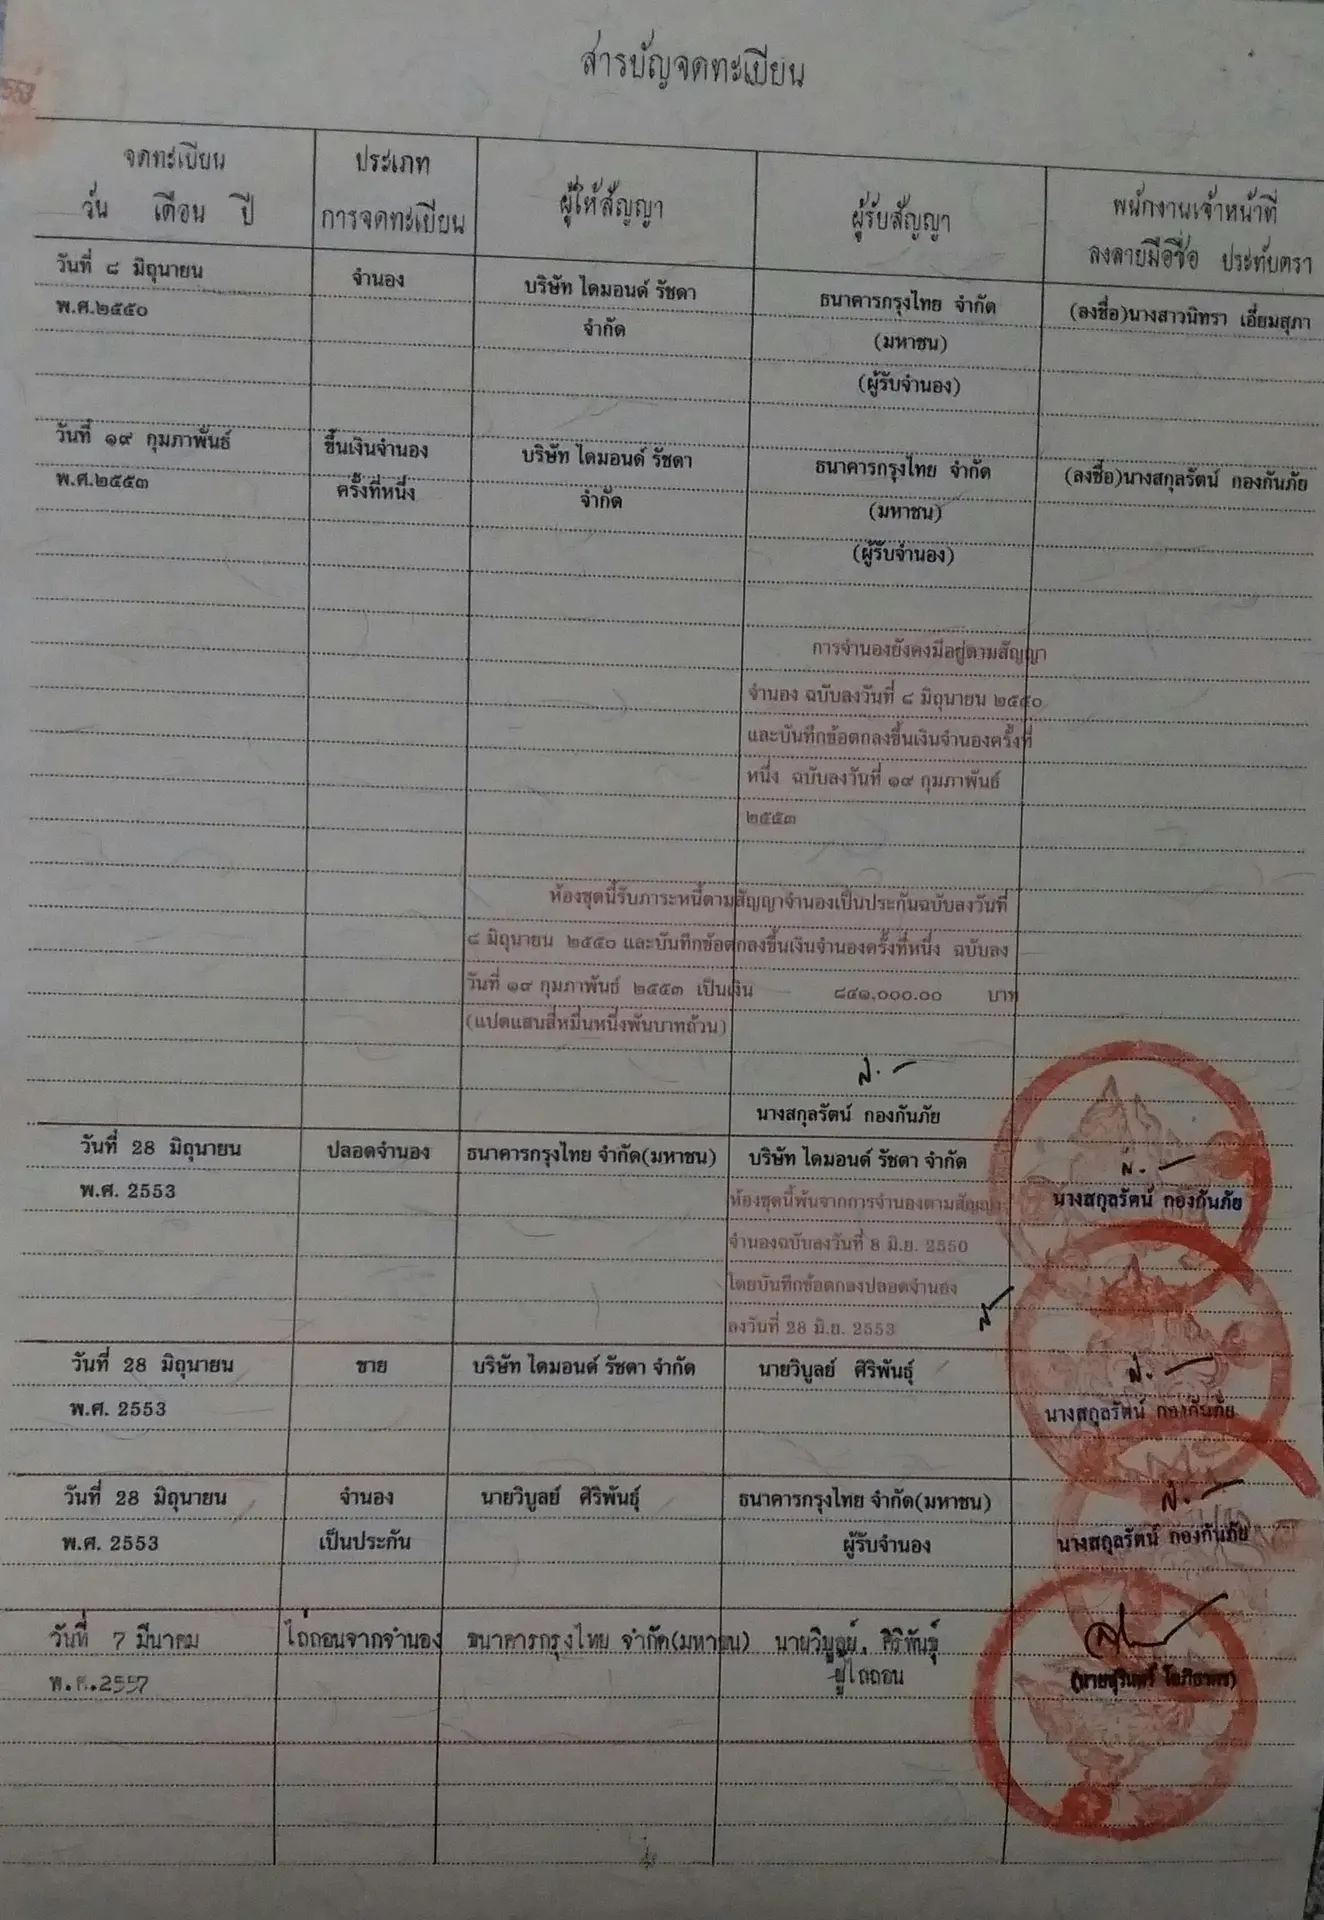 สารบัญจดทะเบียน
จดทะเบียน
วัน เดือน ปี
ประเภท
การจดทะเบียน
ผู้ให้สัญญา
ผู้รับสัญญา
พนักงานเจ้าหน้าที่
ลงลายมือชื่อ ประทับตรา
วันที่ ๘ มิถุนายน
พ.ศ.๒๕๕๐
จำนอง
บริษัท ไดมอนด์ รัชดา
จำกัด
ธนาคารกรุงไทย จำกัด
(มหาชน)
(ผู้รับจำนอง)
(ลงชื่อ)นางสาวนิทรา เอี่ยมสุภา
วันที่ ๑๙ กุมภาพันธ์
พ.ศ.๒๕๕๓
ขึ้นเงินจำนอง
ครั้งที่หนึ่ง
บริษัท ไดมอนด์ รัชดา
จำกัด
ธนาคารกรุงไทย จำกัด
(มหาชน)
(ผู้รับจำนอง)
(ลงชื่อ)นางสกุลรัตน์ กองกันภัย
การจำนองยังคงมีอยู่ตามสัญญา
จำนอง ฉบับลงวันที่ ๘ มิถุนายน ๒๕๕๐
และบันทึกข้อตกลงขึ้นเงินจำนองครั้งที่
หนึ่ง ฉบับลงวันที่ ๑๙ กุมภาพันธ์
๒๕๕๓
ห้องชุดนี้รับภาระหนี้ตามสัญญาจำนองเป็นประกันฉบับลงวันที่
๘ มิถุนายน ๒๕๕๐ และบันทึกข้อตกลงขึ้นเงินจำนองครั้งที่หนึ่ง ฉบับลง
วันที่ ๑๙ กุมภาพันธ์ ๒๕๕๓ เป็นเงิน ๘๔๑,๐๐๐.๐๐ บาท
(แปดแสนสี่หมื่นหนึ่งพันบาทถ้วน)
นางสกุลรัตน์ กองกันภัย
วันที่ 28 มิถุนายน
พ.ศ. 2553
ปลอดจำนอง
ธนาคารกรุงไทย จำกัด(มหาชน)
บริษัท ไดมอนด์ รัชดา จำกัด
ห้องชุดนี้พ้นจากการจำนองตามสัญญา
จำนองฉบับลงวันที่ 8 มิ.ย. 2550
โดยบันทึกข้อตกลงปลอดจำนอง
ลงวันที่ 28 มิ.ย. 2553
นางสกุลรัตน์ กองกันภัย
วันที่ 28 มิถุนายน
พ.ศ. 2553
ขาย
บริษัท ไดมอนด์ รัชดา จำกัด
นายวิบูลย์ ศิริพันธุ์
นางสกุลรัตน์ กองกันภัย
วันที่ 28 มิถุนายน
พ.ศ. 2553
จำนอง
เป็นประกัน
นายวิบูลย์ ศิริพันธุ์
ธนาคารกรุงไทย จำกัด(มหาชน)
ผู้รับจำนอง
นางสกุลรัตน์ กองกันภัย
วันที่ 7 มีนาคม
พ.ศ.2557
ไถ่ถอนจากจำนอง
ธนาคารกรุงไทย จำกัด(มหาชน)
นายวิบูลย์ ศิริพันธุ์
ผู้ไถ่ถอน